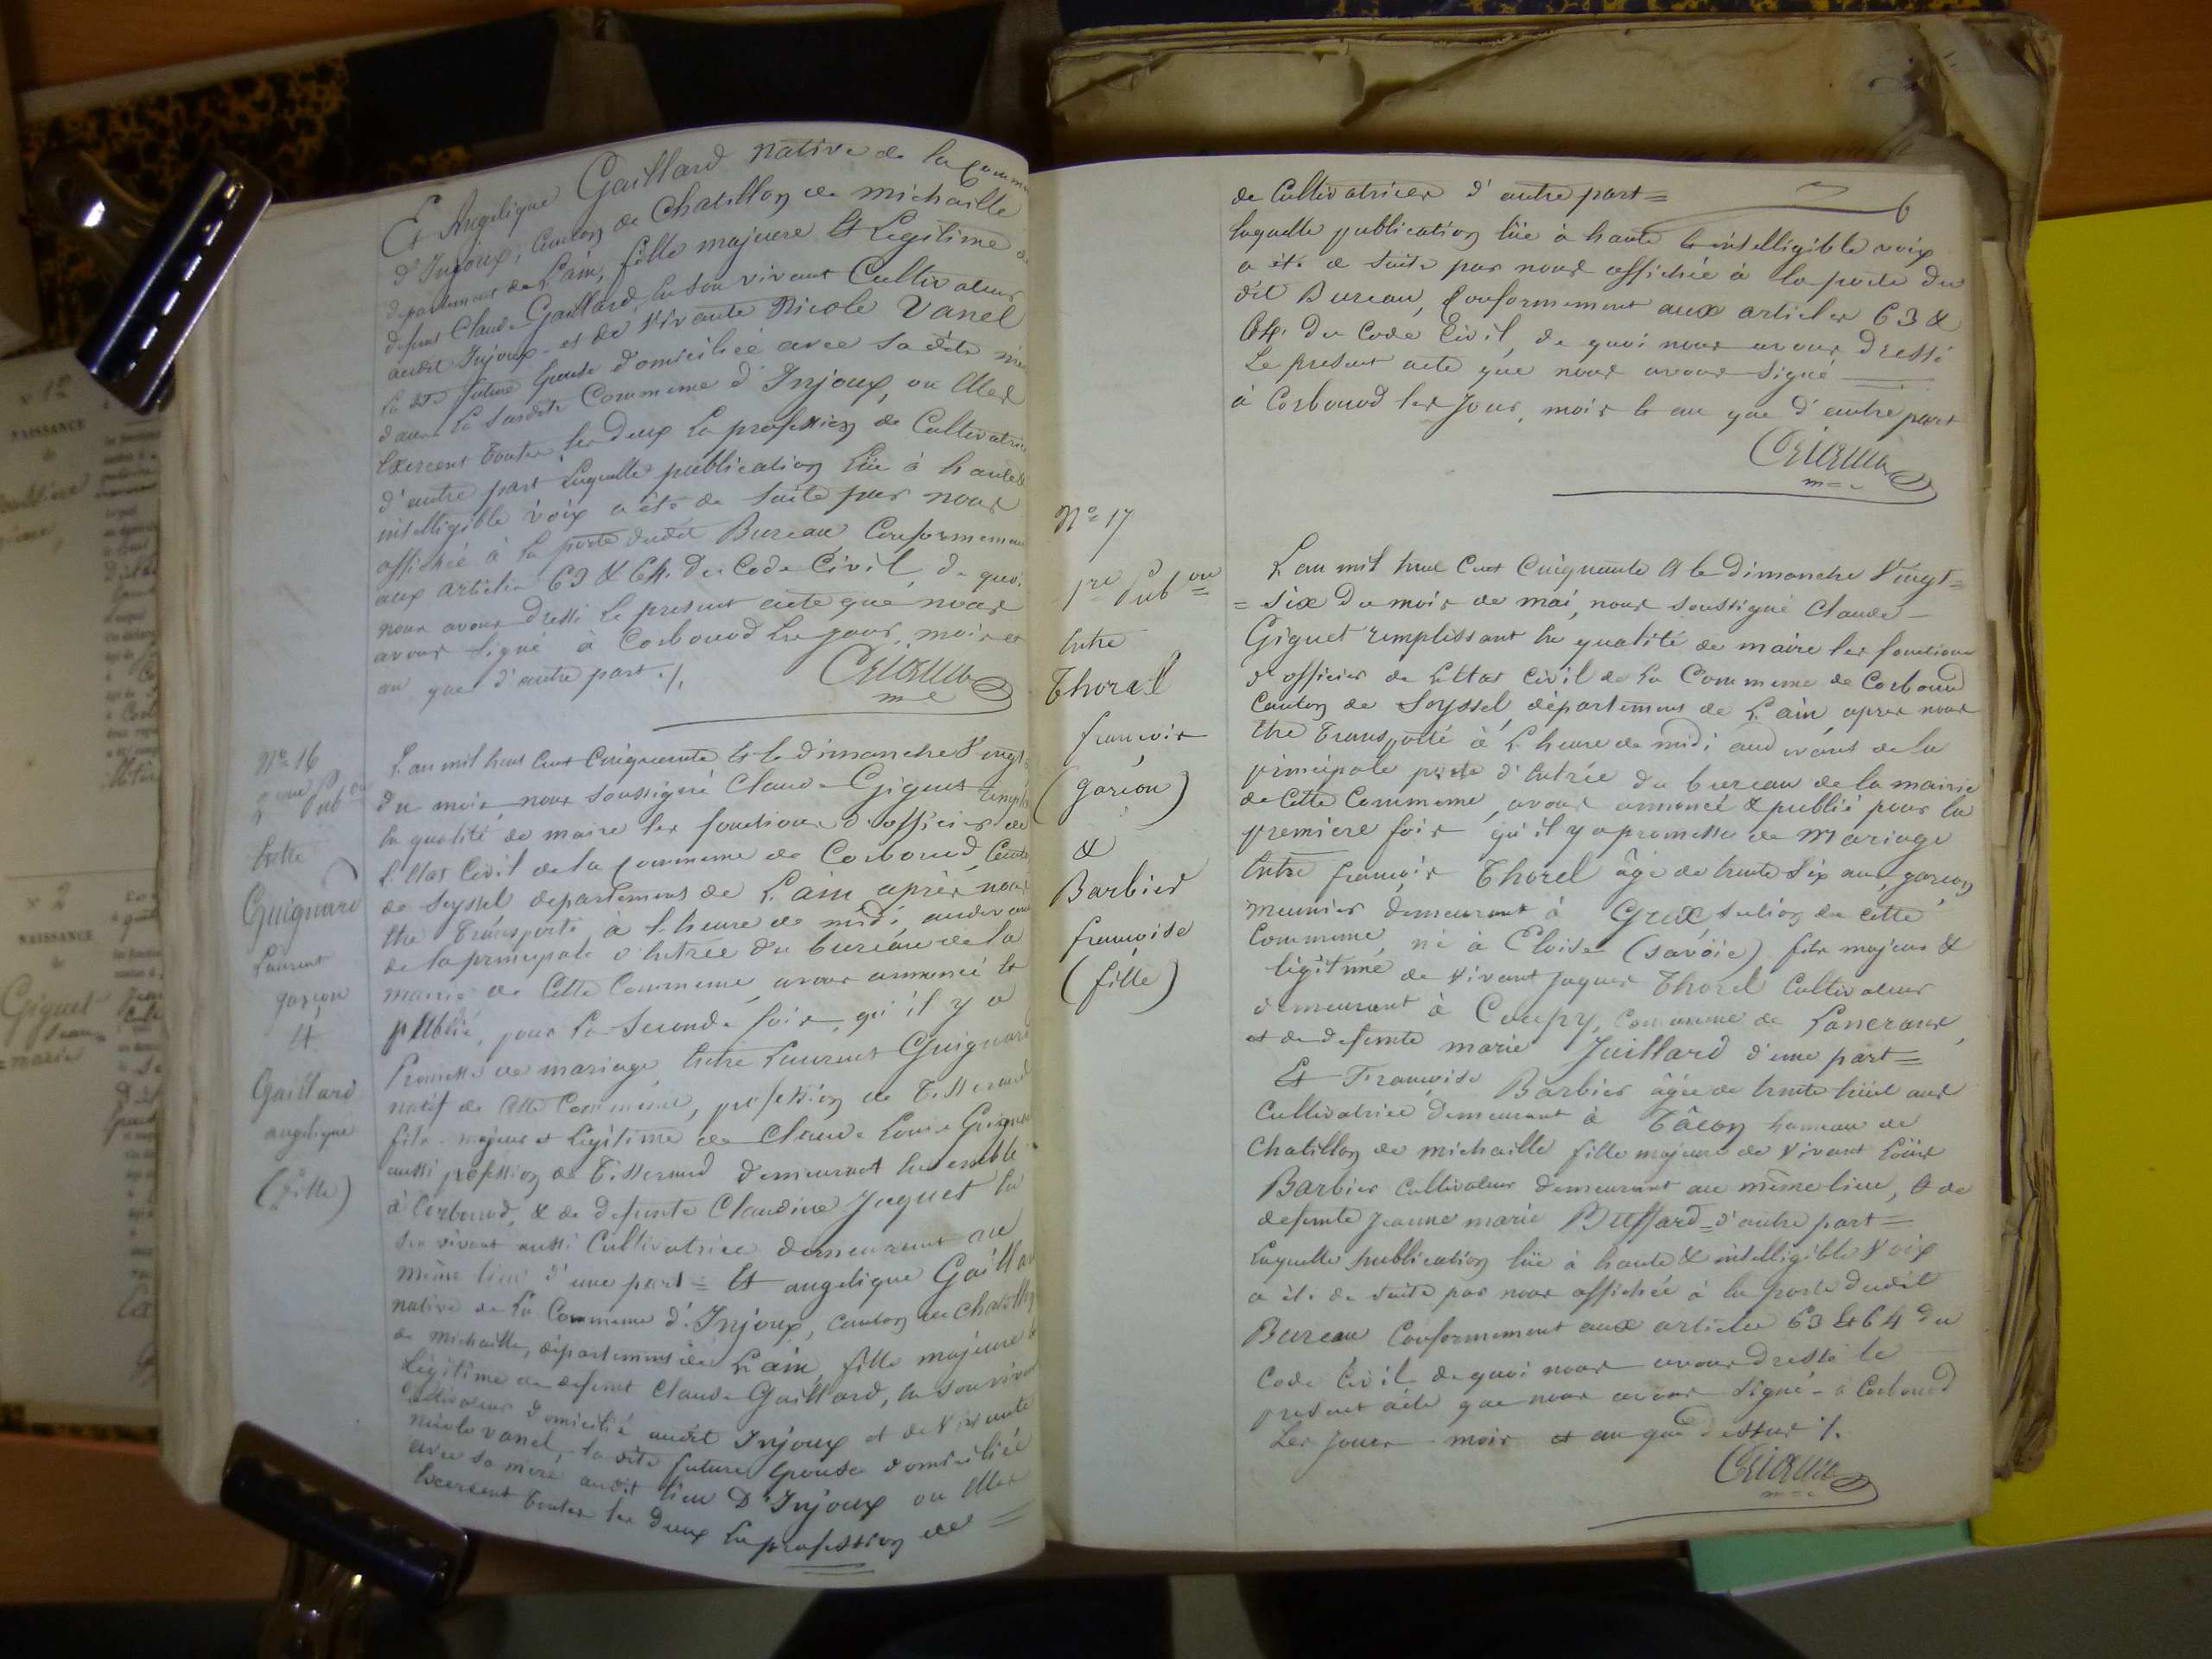 Et Angelique Gaillard native de la Comm
d'Injoux, Canton de Chatillon de michaille
departement de L'ain, fille majeure & Legitime de
defunt Claude Gaillard, en son vivant Cultivateur
audit Injoux - et de vivante Nicole Vanel
la dite future Epouse domiciliée avec sa dite mère
dans la susdite Commune d'Injoux, ou Elles
Exercent toutes les deux la profession de Cultivatrice
d'autre part Laquelle publication Lüe à haute &
intelligible voix a été de suite par nous
affichée à la porte dudit Bureau Conformement
aux articles 63 & 64 du Code Civil, de quoi
nous avons dressé le present acte que nous
avons signé à Corbonod les jour, mois et
an que d'autre part ./.
N° 16
2eme Pubon
Entre
Guignard
Laurent
garçon
Et
Gaillard
angelique
(fille)
L'an mil huit Cent Cinquante & le dimanche Vingt
du mois, nous soussigné Claude Giguet rempli
En qualité de maire les fonctions d'officier de
L'Etat Civil de la Commune de Corbonod, Canton
de Seyssel departement de L'ain après nous
Etre Transporté, à L'heure de midi audevant
de la principale d'Entrée du bureau de la
mairie de Cette Commune, avons annoncé &
publié, pour la seconde fois, qu'il y a
Promesse de mariage Entre Laurent Guignard
natif de Cette Commune, profession de Tisserand
fils majeur et Legitime de Claude Louis Guignard
aussi profession de Tisserand demeurant Ensemble
à Corbonod, & de defunte Claudine Jaquet En
son vivant aussi Cultivatrice demeurant au
même lieu d'une part = Et angelique Gaillard
native de la Commune d'Injoux, canton de Chatillon
de Michaille, departement de L'ain, fille majeure &
Legitime de defunt Claude Gaillard, En son vivant
Cultivateur domicilié audit Injoux et de Vivante
nicole vanel, la dite future Epouse domiciliée
avec sa mère audit lieu D'Injoux ou Elles
Exercent toutes les deux La profession de =
6
de Cultivatrices d'autre part =
laquelle publication lüe à haute & intelligible voix
a été de suite par nous affichée à la porte du
dit Bureau, Conformement aux articles 63 &
64. du Code Civil, de quoi nous avons dressé
Le present acte que nous avons signé
à Corbonod les jour, mois & an que d'autre part
N° 17
1re Pubon
Entre
Thorel
françois
(garçon)
&
Barbier
françoise
(fille)
L'an mil huit Cent Cinquante & le dimanche Vingt=
= six du mois de mai, nous soussigné Claude
Giguet remplissant En qualité de maire les fonctions
d'officier de L'Etat Civil de la Commune de Corbonod
Canton de Seyssel, département de L'ain, après nous
Etre Transporté à L'heure de midi audevant de la
principale porte d'Entrée du bureau de la mairie
de Cette Commune, avons annoncé & publié pour la
premiere fois qu'il y a promesse de Mariage
Entre françois Thorel âgé de trente six ans, garçon
meunier demeurant à Grex, section de cette
Commune, né à Eloise (savoie) fils majeur &
légitime de vivant Jaques Thorel Cultivateur
demeurant à Coupy, Commune de Lancrans,
et de defunte marie Juillard d'une part =
Et Françoise Barbier âgée de trente huit ans
Cultivatrice demeurant à Tâcon hameau de
Chatillon de michaille fille majeure de Vivant Loüis
Barbier Cultivateur demeurant au même lieu, & de
defunte jeanne marie Buffard = d'autre part =
Laquelle publication lüe à haute & intelligible Voix
a été de suite par nous affichée à la porte dudit
Bureau Conformement aux articles 63 & 64 du
Code Civil de quoi nous avons dressé le
present acte que nous avons signé - à Corbonod
Les jour - mois et an que dessus ./.